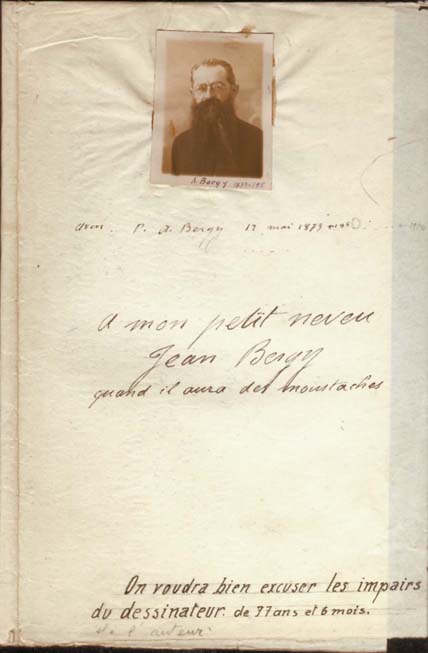 A. Bergy
P. A. Bergy 17 mai 1873
A mon petit neveu
Jean Bergy
quand il aura des moustaches
On voudra bien excuser les impairs
du dessinateur. de 77 ans et 6 mois.
et de l'auteur.